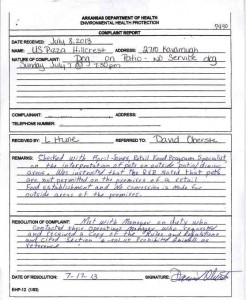 ARKANSAS DEPARTMENT OF HEALTH
ENVIRONMENTAL HEALTH PROTECTION
COMPLAINT REPORT
DATE RECEIVED: July 8, 2013
NAME: US Pizza Hillcrest ADDRESS: 2710 Kavanaugh
NATURE OF COMPLAINT: Dog on Patio - No Service dog
Sunday July 7 @ 7:30pm
COMPLAINANT: ADDRESS:
TELEPHONE NUMBER
RECEIVED BY: L Hune REFERRED TO: David
REMARKS: Checked with Retail Food Program Specialist
on the interpretation of pets on outside patio/dining
areas. Was instructed that the R&R stated that pets
are not permitted on the premises of a retail
food establishment and No concession is made for
outside areas of the premises.
RESOLUTION OF COMPLAINT: Met with Manager on duty who
contacted their Operations Manager who requested
and received a copy of the Rules and Regulations
and cited Section on Prohibited Animals as
reference.
DATE OF RESOLUTION: 7-12-13 SIGNATURE:
EHP-12